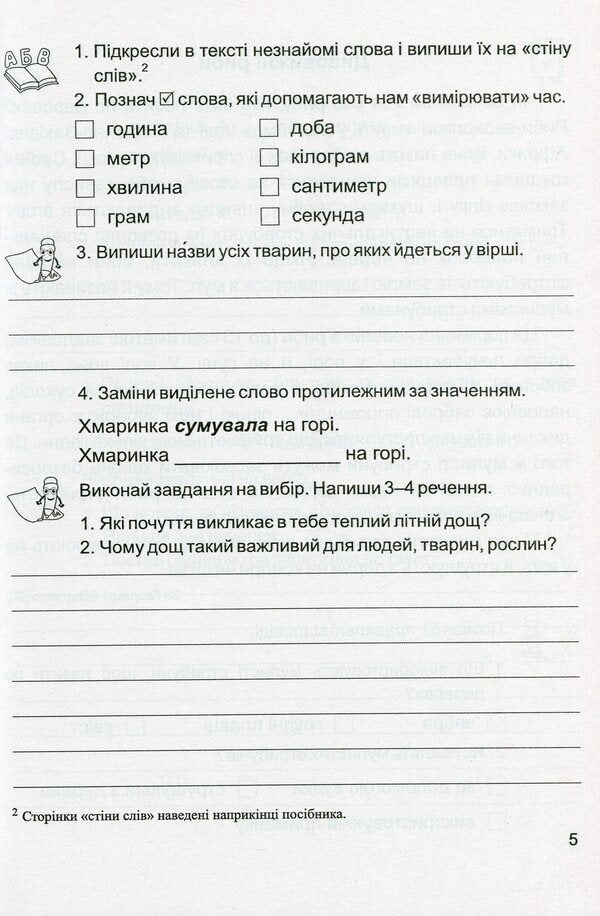 АБВ
1. Підкресли в тексті незнайомі слова і випиши їх на «стіну
слів».²
2. Познач ☑ слова, які допомагають нам «вимірювати» час.
година
доба
метр
кілограм
хвилина
сантиметр
грам
секунда
3. Випиши на́зви усіх тварин, про яких йдеться у вірші.
4. Заміни виділене слово протилежним за значенням.
Хмаринка сумувала на горі.
Хмаринка ________________ на горі.
Виконай завдання на вибір. Напиши 3–4 речення.
1. Які почуття викликає в тебе теплий літній дощ?
2. Чому дощ такий важливий для людей, тварин, рослин?
² Сторінки «стіни слів» наведені наприкінці посібника.
5